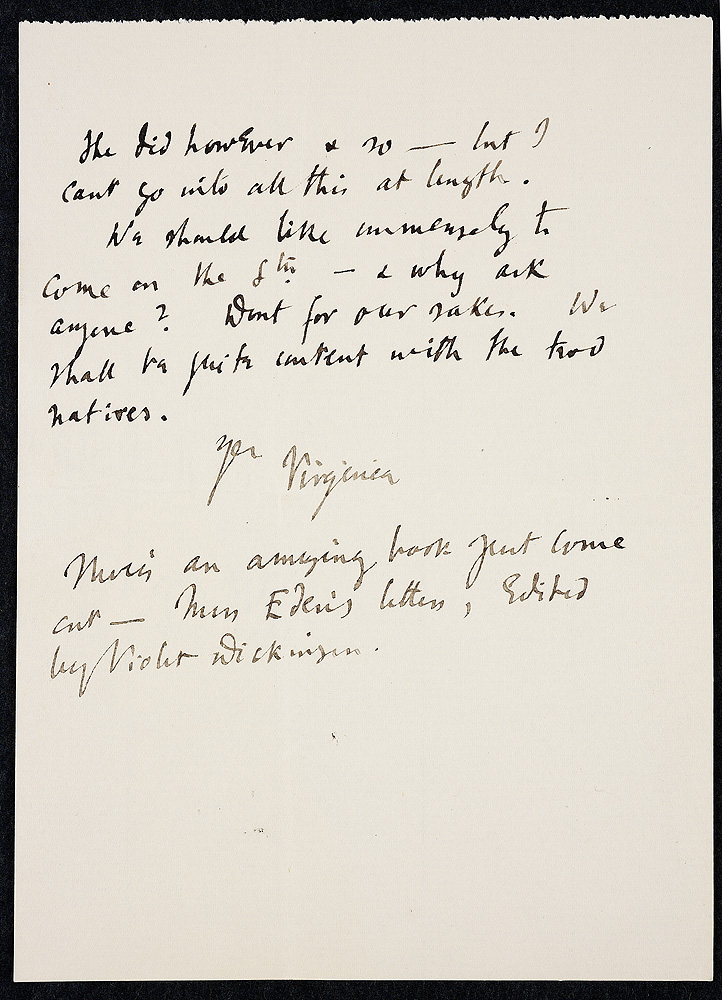 She did however & so — but I
cant go into all this at length.
We should like immensely to
come on the 8th — & why ask
anyone? Dont for our sakes. We
shall be quite content with the two
natives.
Yer
Virginia
There's an amazing book just come
out — Miss Eden's letters, Edited
by Violet Dickinson.